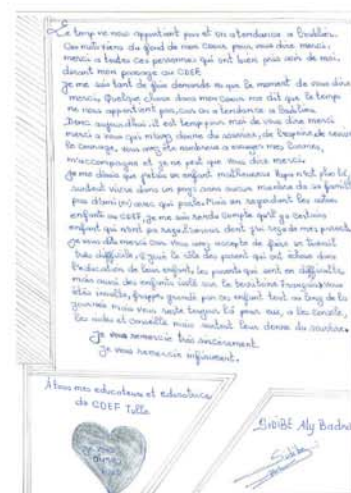 Le temp ne nous appartient pas et on a tendance a l'oublier.
Ces mots viens du fond de mon coeur pour vous dire merci,
merci a toutes ces personnes qui ont bien pris soin de moi,
durant mon passage au CDEF
Je me suis tant de fois demandé es que le moment de vous dire
merci, Quelque chose dans mon coeur me dit que le temp
ne nous appartient pas, car on a tendance a l'oublier.
Donc aujourd'hui il est temp pour moi de vous dire merci
merci a vous qui m'avez donné du sourire, de l'espoire de
le courage, vous avez été nombreux a essuyer mes larmes,
m'accompagné et je ne peut que vous dire merci.
Je me disais que j'étais un enfant malheureux
surtout vivre dans un pays sans aucun membre de sa famille
pas d'ami avec qui parlé. Mais en regardant les autres
enfants au CDEF, je me suis rendu compte qu'il y a certains
enfant qui n'ont pas reçu l'amour dont j'ai reçu de mes parents.
Je vous dite merci car vous avez accepté de faire un travail
très difficile, de jouer le rôle des parent qui ont échoué dans
l'éducation de leur enfant, les parents qui sont en difficultés
mais aussi des enfants isolé sur le territoire français. Vous
êtes insulté, frappé, grondé par ses enfant tout au long de la
journée mais vous resté toujours là pour eux, a les consolé,
les aidés et conseillé mais surtout leur donné du sourire.
Je vous remercie très sincèrement.
Je vous remercie infiniment.
A tous mes educateurs et educatrice
de CDEF Tulle
SIDIBE Aly Badra
Sidibe